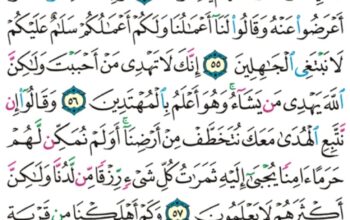 أَعْرَضُوا۟ عَنْهُ وَقَالُوا۟ لَنَآ أَعْمَـٰلُنَا وَلَكُمْ أَعْمَـٰلُكُمْ سَلَـٰمٌ عَلَيْكُمْ
لَا نَبْتَغِى ٱلْجَـٰهِلِينَ ٥٥ إِنَّكَ لَا تَهْدِى مَنْ أَحْبَبْتَ وَلَـٰكِنَّ
ٱللَّهَ يَهْدِى مَن يَشَآءُ ۚ وَهُوَ أَعْلَمُ بِٱلْمُهْتَدِينَ ٥٦ وَقَالُوٓا۟ إِن
نَّتَّبِعِ ٱلْهُدَىٰ مَعَكَ نُتَخَطَّفْ مِنْ أَرْضِنَآ ۚ أَوَلَمْ نُمَكِّن لَّهُمْ
حَرَمًا ءَامِنًا يُجْبَىٰٓ إِلَيْهِ ثَمَرَٰتُ كُلِّ شَىْءٍ رِّزْقًا مِّن لَّدُنَّا وَلَـٰكِنَّ
أَكْثَرَهُمْ لَا يَعْلَمُونَ ٥٧ وَكَمْ أَهْلَكْنَا مِن قَرْيَةٍ